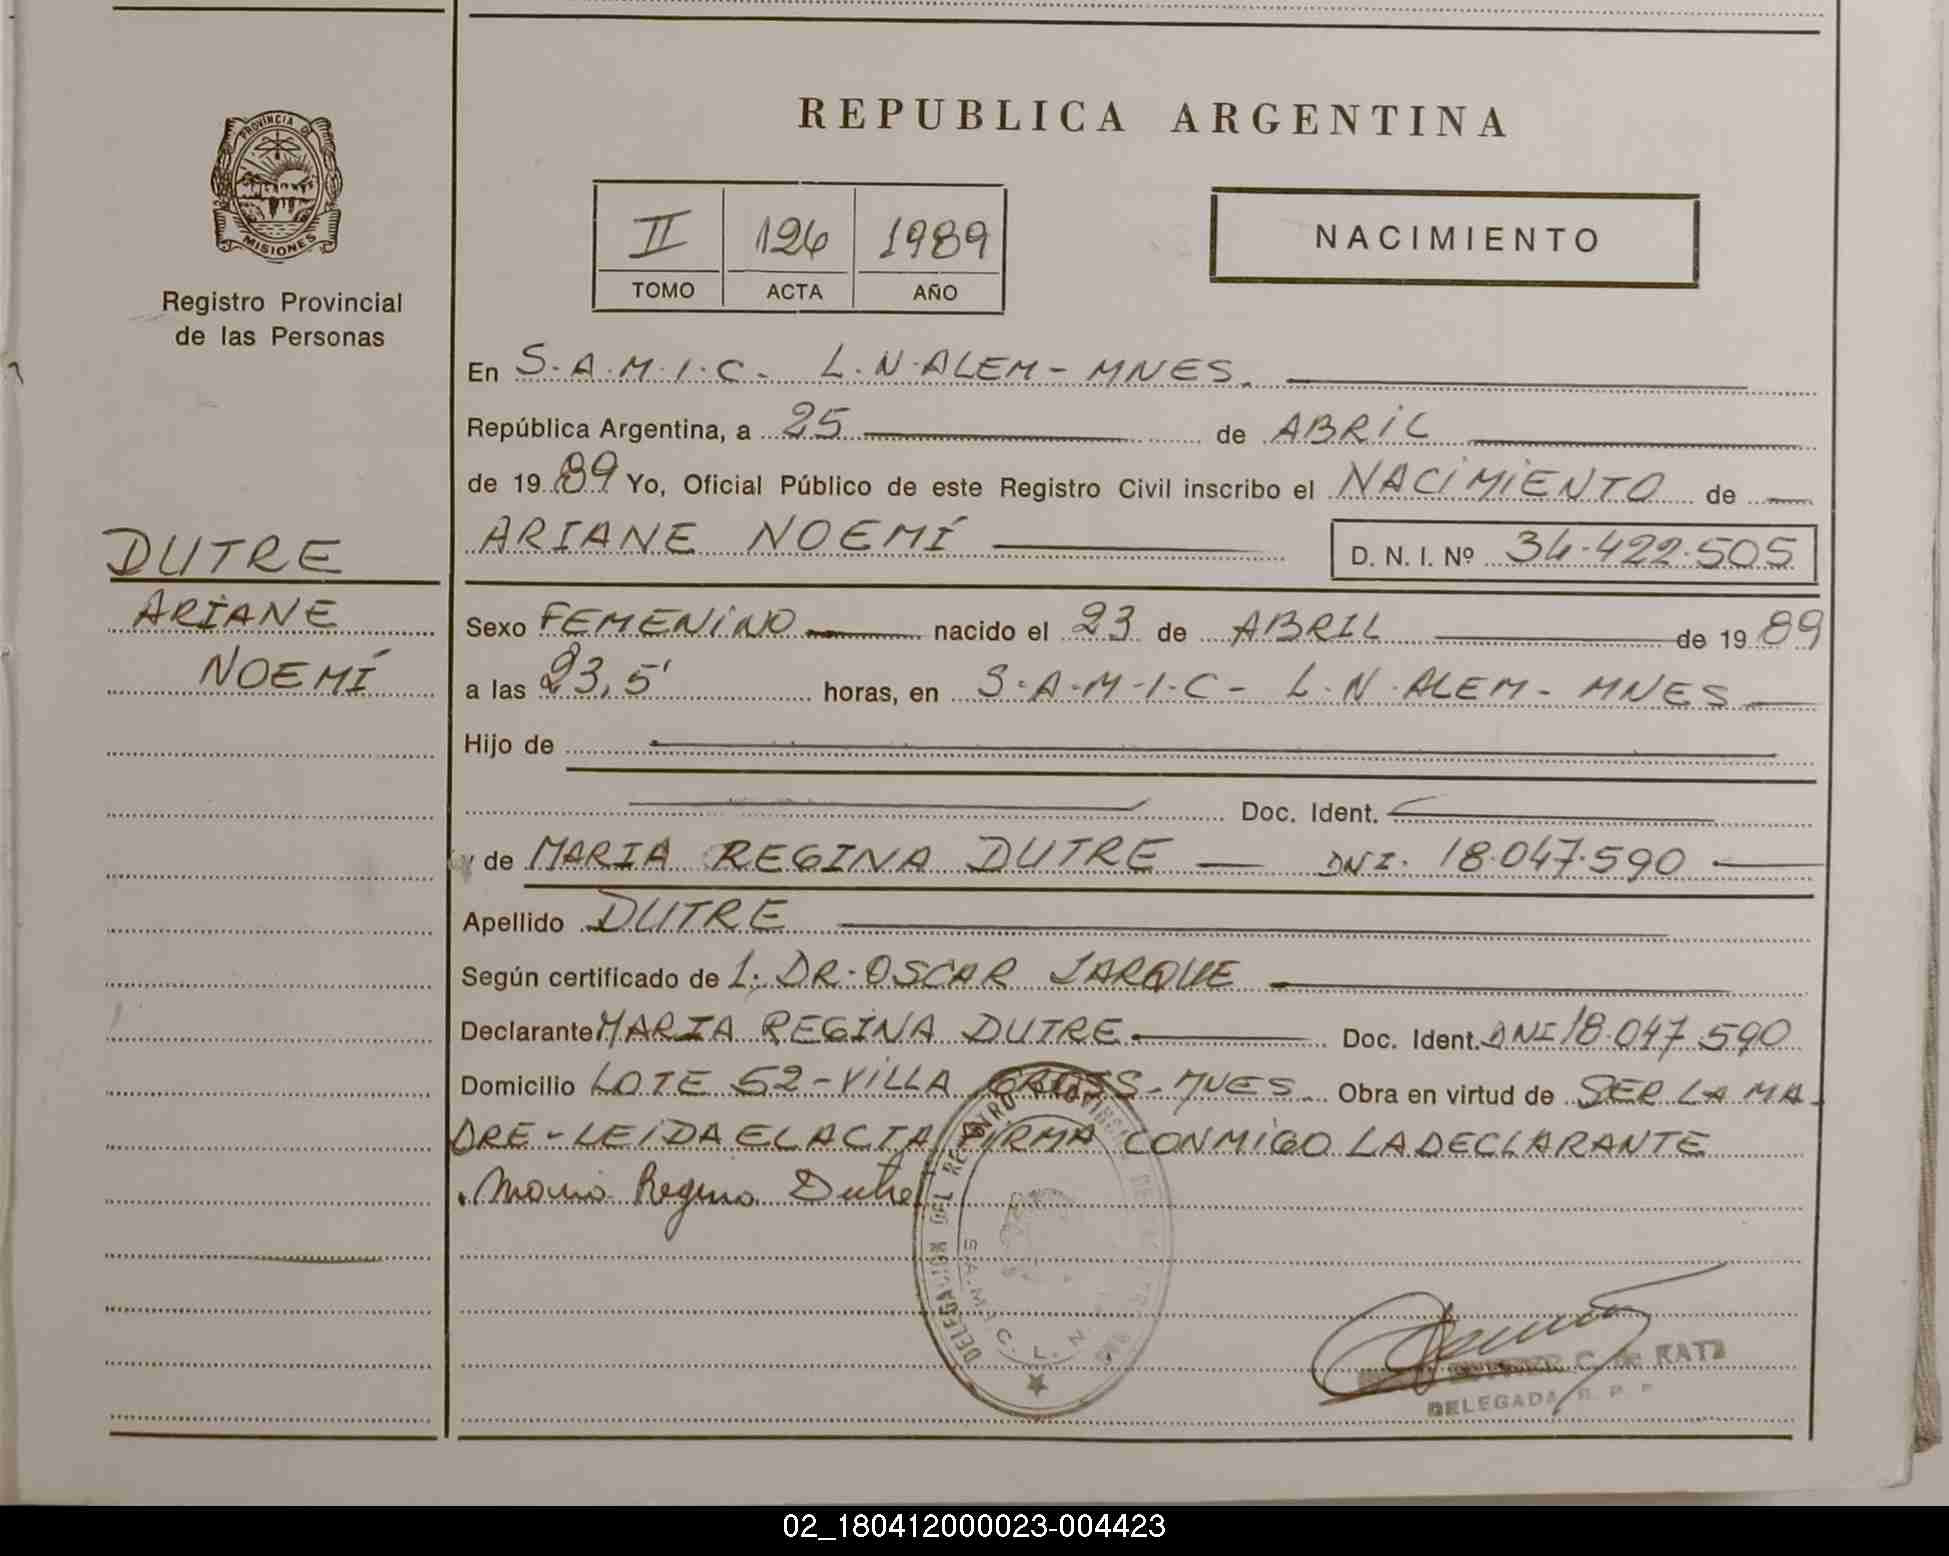 REPUBLICA ARGENTINA
PROVINCIA DE
MISIONES
Registro Provincial
de las Personas
II 126 1989
TOMO ACTA AÑO
NACIMIENTO
En S.A.M.I.C. L.N.ALEM - MNES.
República Argentina, a 25 de ABRIL
de 1989 Yo, Oficial Público de este Registro Civil inscribo el NACIMIENTO de
ARIANE NOEMÍ D. N. I. Nº 34.422.505
DUTRE
ARIANE
NOEMÍ
Sexo FEMENINO nacido el 23 de ABRIL de 1989
a las 23,5' horas, en S.A.M.I.C - L.N.ALEM - MNES
Hijo de
Doc. Ident.
y de MARIA REGINA DUTRE DNI. 18.047.590
Apellido DUTRE
Según certificado de 1. DR. OSCAR JARQUE
Declarante MARIA REGINA DUTRE Doc. Ident. DNI 18.047.590
Domicilio LOTE 52 - VILLA - MNES. Obra en virtud de SER LA MA-
DRE - LEIDA EL ACTA FIRMA CONMIGO LA DECLARANTE
Maria Regina Dutre
DELEGACION DEL REGISTRO PROVINCIAL DE
S.A.M.I.C. L. N.
C. de KATZ
DELEGADA R. P. P.
02_180412000023-004423